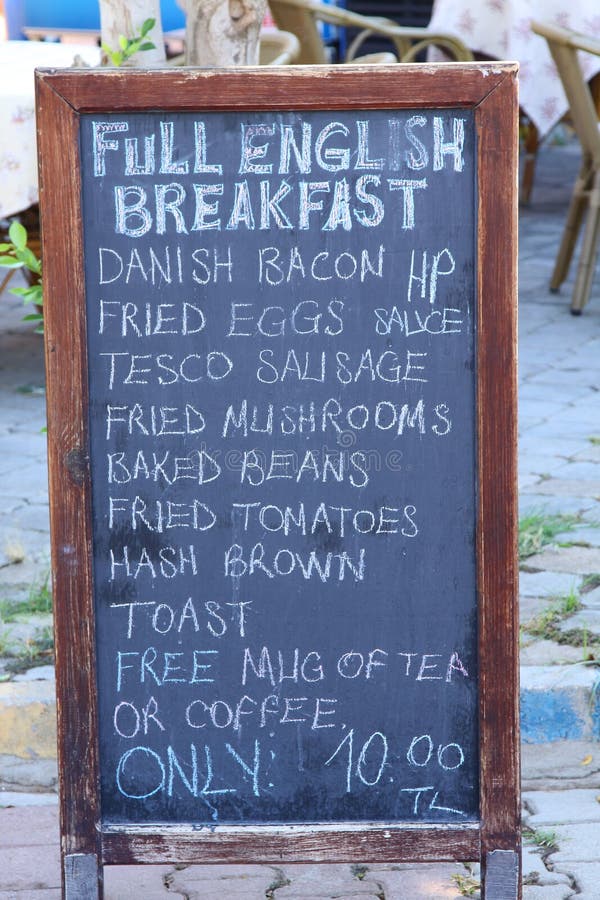 FULL ENGLISH
BREAKFAST
DANISH BACON HP
FRIED EGGS SAUCE
TESCO SAUSAGE
FRIED MUSHROOMS
BAKED BEANS
FRIED TOMATOES
HASH BROWN
TOAST
FREE MUG OF TEA
OR COFFEE.
ONLY: 10.00
TL